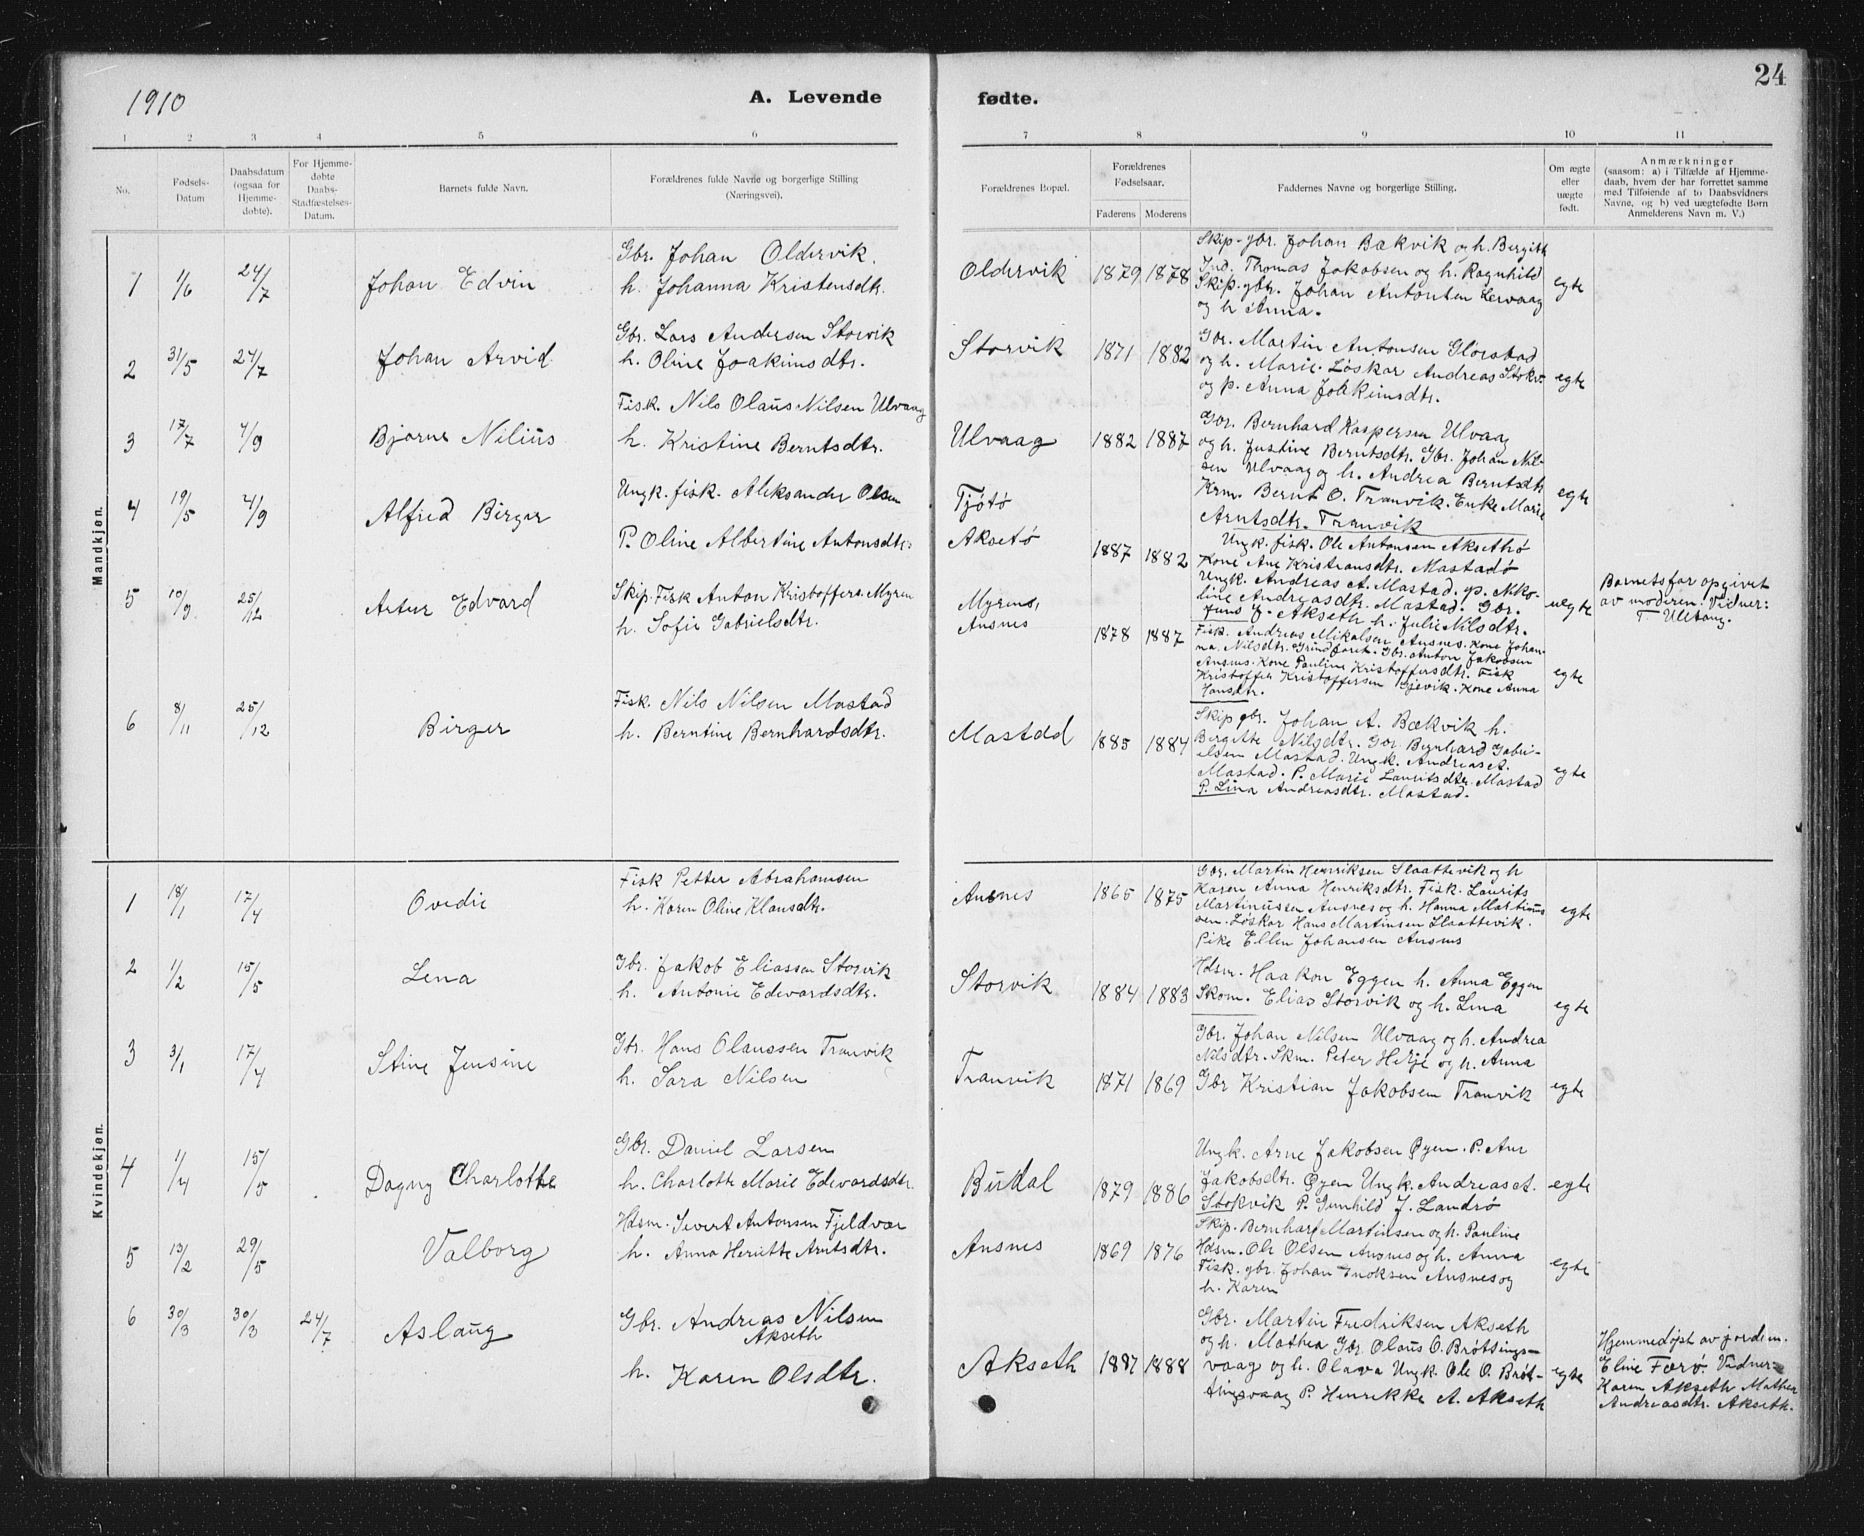 24
1910
A. Levende fødte.
1 2 3 4 5 6 7 8 9 10 11
No.
Fødsels-Datum
Daabsdatum (ogsaa for Hjemme-døbte).
For Hjemme-døbte Daabs-Stadfæstelses-Datum.
Barnets fulde Navn.
Forældrenes fulde Navne og borgerlige Stilling (Næringsvei).
Forældrenes Bopæl.
Forældrenes Fødselsaar.
Faderens Moderens
Faddernes Navne og borgerlige Stilling.
Om ægte eller uægte født.
Anmærkninger
(saasom: a) i Tilfælde af Hjemme-
daab, hvem der har forrettet samme
med Tilføiende af to Daabsvidners
Navne, og b) ved uægtefødte Børn
Anmelderens Navn m. V.)
Mandkjøn.
1 1/6 24/7 Johan Edvin
Gbr. Johan Oldervik.
h. Johanna Kristensdtr.
Oldervik 1879 1878
Skip-gbr. Johan Bækvik og h. Bergitte
Ind. Thomas Jakobsen og h. Ragnhild
Skip.gbr. Johan Antonsen Lervaag
og h Anna.
egte
2 31/5 24/7 Johan Arvid
Gbr. Lars Andersen Storvik
h. Oline Joakimsdtr.
Storvik 1871 1882
Gbr. Martin Antonsen Glørstad
og h. Marie. Løskar Andreas Stokv.
og p. Anna Joakimsdtr.
egte
3 17/7 4/9 Bjarne Nilius
Fisk. Nils Olaus Nilsen Ulvaag
h. Kristine Berntsdtr.
Ulvaag 1882 1887
Gbr. Bernhard Kaspersen Ulvaag
og h. Justine Berntsdtr. Gbr. Johan Nil-
sen Ulvaag og h. Andrea Berntsdtr
Krm. Bernt O. Tranvik. Enke Marie
Arntsdtr. Tranvik
egte
4 19/5 4/9 Alfred Birger
Ungk. fisk. Aleksander Olsen
P. Oline Albertine Antonsdtr.
Tjøtø
Aksetø 1887 1882
Ungk. fisk. Ole Antonsen Aksethø
Kone Ane Kristiansdtr. Mastadø
Ungk. Andreas A. Mastad. p. Niko-
line Andreasdtr. Mastad. Gbr.
Jens J. Akseth h. Julie Nilsdtr.
uegte
Barnetsfar opgivet
av moderen. Vidner:
T Ulstang.
5 10/9 25/12 Artur Edvard
Skip. Fisk Anton Kristoffers. Myren
h. Sofie Gabrielsdtr.
Myrens,
Ansnes 1878 1887
Fisk. Andreas Mikalsen Ansnes. Kone Johan-
na. Nilsdtr. Grindfaret. Gbr. Anton Jakobsen
Ansnes. Kone Pauline Kristoffersdtr. Fisk
Kristoffer Kristoffersen Gjevik. Kone Anna
Hansdtr.
egte
6 8/11 25/12 Birger
Fisk. Nils Nilsen Mastad
h. Berntine Bernhardsdtr.
Mastdd 1885 1884
Skip gbr. Johan A. Bækvik h.
Bergitte Nilsdtr. Gbr Bernhard Gabri-
elsen Mastad. Ungk. Andreas A.
Mastad. P. Marie Lauritsdtr. Mastad
P. Lina Andreasdtr. Mastad.
egte
Kvindekjøn.
1 18/1 17/4 Ovedie
Fisk Petter Abrahamsen
h. Karen Oline Klausdtr.
Ansnes 1865 1875
Gbr. Martin Henriksen Slaattevik og h
Karen Anna Henriksdtr. Fisk. Laurits
Martinussen Ansnes og h. Hanna Martinus
sen. Løskar Hans Martinsen Slaattevik.
Pike Ellen Johansen Ansnes
egte
2 1/2 15/5 Lena
Gbr. Jakob Eliassen Storvik
h. Antonie Edevardsdtr.
Storvik 1884 1883
Hdsm. Haakon Eggen h. Anna Eggen
Skom. Elias Storvik og h. Lena
egte
3 3/1 17/4 Stine Jensine
Gbr. Hans Olaussen Tranvik
h. Sara Nilsen
Tranvik 1871 1869
Gbr. Johan Nilsen Ulvaag og h. Andrea
Nilsdtr. Skm. Peter Hitje og h. Anna
Gbr Kristian Jakobsen Tranvik
egte
4 1/4 15/5 Dagny Charlotte
Gbr. Daniel Larsen
h. Charlotte Marie Edevardsdtr.
Budal 1879 1886
Ungk. Arne Jakobsen Øyen. P. Ane
Jakobsdtr. Øyen Ungk. Andreas A.
Stokvik P. Gunhild J. Landrø
egte
5 13/2 29/5 Valborg
Hdsm. Sivert Antonsen Fjeldvær
h. Anna Heriette Arntsdtr.
Ansnes 1869 1876
Skip. Bernhard Martinsen og h. Pauline
Hdsm. Ole Olsen Ansnes og h. Anna
Fisk. gbr. Johan Enoksen Ansnes og
h. Karen
egte
6 30/3 30/3 24/7 Aslaug
Gbr. Andreas Nilsen
Akseth
h. Karen Olsdtr.
Akseth 1887 1888
Gbr. Martin Fredriksen Akseth
og h. Mathea Gbr. Olaus O. Brøttings-
vaag og h. Olava Ungk. Ole O. Brøt-
tingsvaag P. Henrikke A. Akseth
egte
Hjemmedøpt av jordem.
Eline Færø Vidner
Karen Akseth Mathea
Andreasdtr. Akseth.